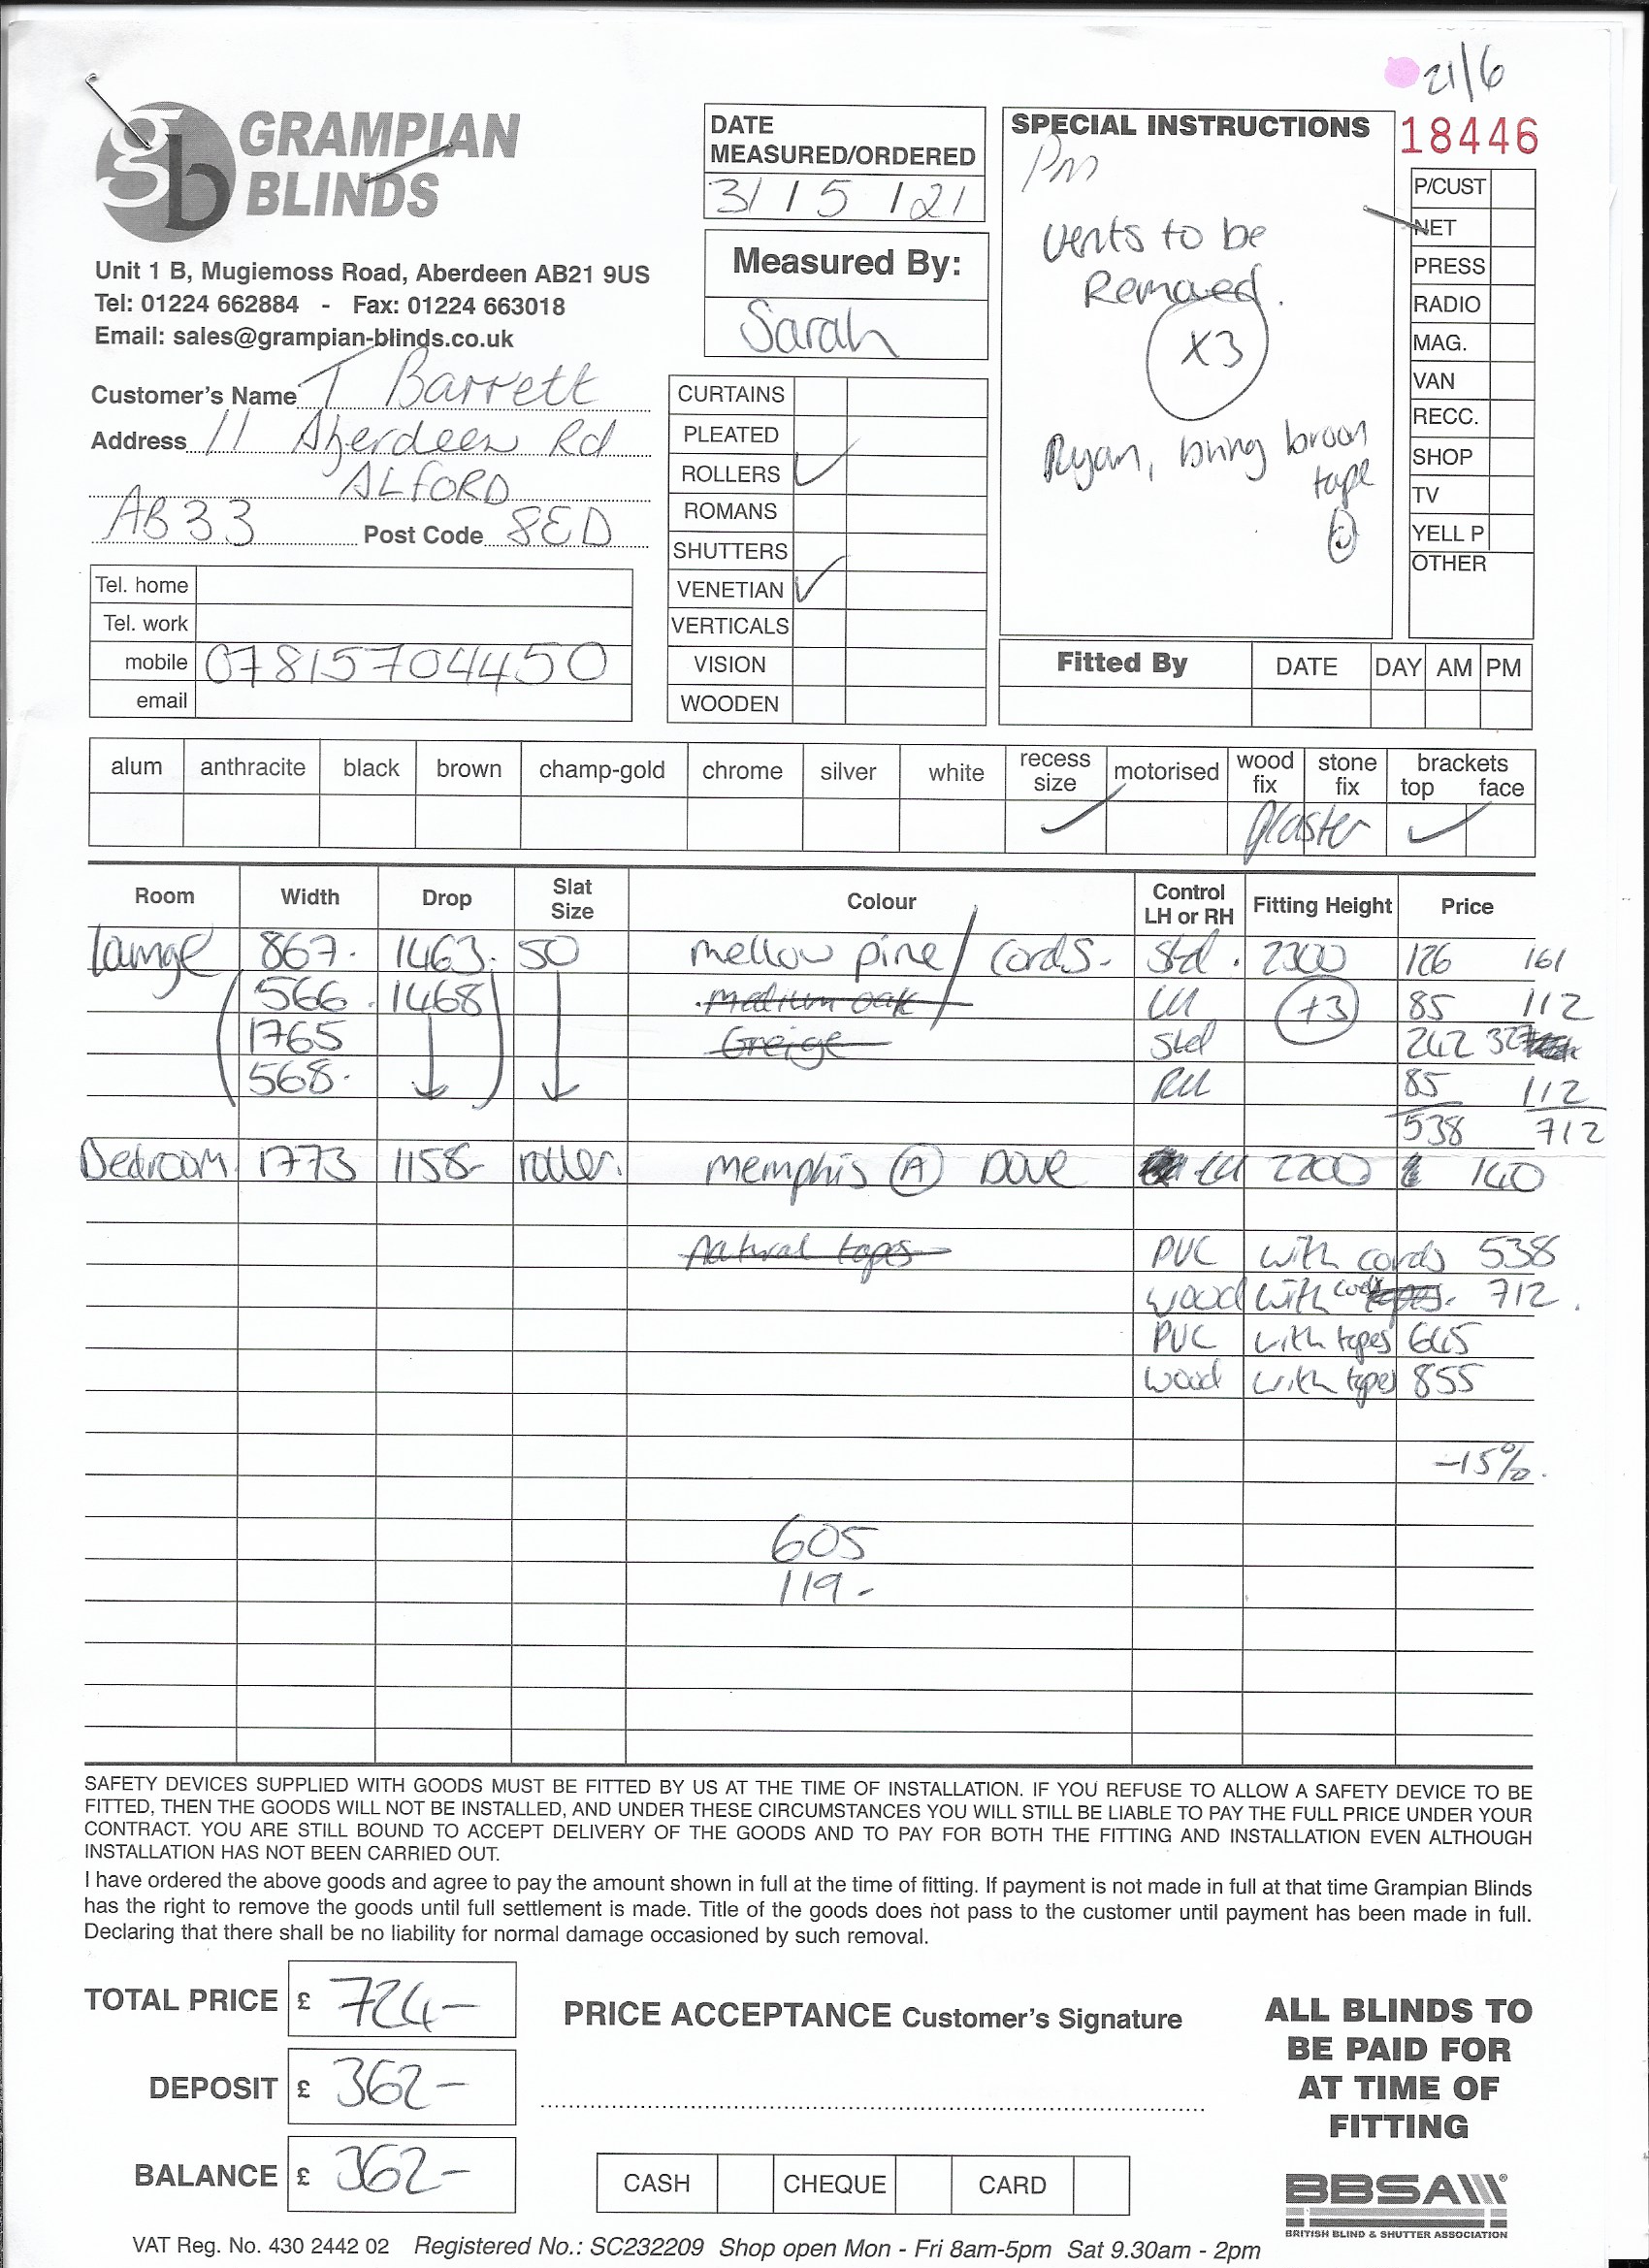 21/6
GRAMPIAN
BLINDS
gb
Unit 1 B, Mugiemoss Road, Aberdeen AB21 9US
Tel: 01224 662884 - Fax: 01224 663018
Email: sales@grampian-blinds.co.uk
DATE
MEASURED/ORDERED
31 / 5 / 21
Measured By:
Sarah
SPECIAL INSTRUCTIONS
Pm
vents to be
Removed.
X3
Ryan, bring broon
tape
18446
P/CUST
NET
PRESS
RADIO
MAG.
VAN
RECC.
SHOP
TV
YELL P
OTHER
Customer's Name T Barrett
Address 11 Aberdeen Rd
ALFORD
AB33 Post Code 8ED
Tel. home
Tel. work
mobile 07815704450
email
CURTAINS
PLEATED
ROLLERS ✓
ROMANS
SHUTTERS
VENETIAN ✓
VERTICALS
VISION
WOODEN
Fitted By DATE DAY AM PM
alum anthracite black brown champ-gold chrome silver white recess size motorised wood fix stone fix brackets top face
✓ plaster ✓
Room Width Drop Slat Size Colour Control LH or RH Fitting Height Price
Lounge 867. 1463. 50 mellow pine / cords. Std. 2300 126 161
566. 1468 medium oak LH +3 85 112
1765 Greige Std 242 327
568. RH 85 112
538 712
Bedroom 1773 1158- roller. memphis A Dove LH 2200 140
Natural tapes PVC with cords 538
wood with cords 712.
PVC with tapes 645
wood with tapes 855
-15%.
605
119-
SAFETY DEVICES SUPPLIED WITH GOODS MUST BE FITTED BY US AT THE TIME OF INSTALLATION. IF YOU REFUSE TO ALLOW A SAFETY DEVICE TO BE
FITTED, THEN THE GOODS WILL NOT BE INSTALLED, AND UNDER THESE CIRCUMSTANCES YOU WILL STILL BE LIABLE TO PAY THE FULL PRICE UNDER YOUR
CONTRACT. YOU ARE STILL BOUND TO ACCEPT DELIVERY OF THE GOODS AND TO PAY FOR BOTH THE FITTING AND INSTALLATION EVEN ALTHOUGH
INSTALLATION HAS NOT BEEN CARRIED OUT.
I have ordered the above goods and agree to pay the amount shown in full at the time of fitting. If payment is not made in full at that time Grampian Blinds
has the right to remove the goods until full settlement is made. Title of the goods does not pass to the customer until payment has been made in full.
Declaring that there shall be no liability for normal damage occasioned by such removal.
TOTAL PRICE £ 724-
DEPOSIT £ 362-
BALANCE £ 362-
PRICE ACCEPTANCE Customer's Signature
CASH CHEQUE CARD
ALL BLINDS TO
BE PAID FOR
AT TIME OF
FITTING
BBSA
BRITISH BLIND & SHUTTER ASSOCIATION
VAT Reg. No. 430 2442 02 Registered No.: SC232209 Shop open Mon - Fri 8am-5pm Sat 9.30am - 2pm